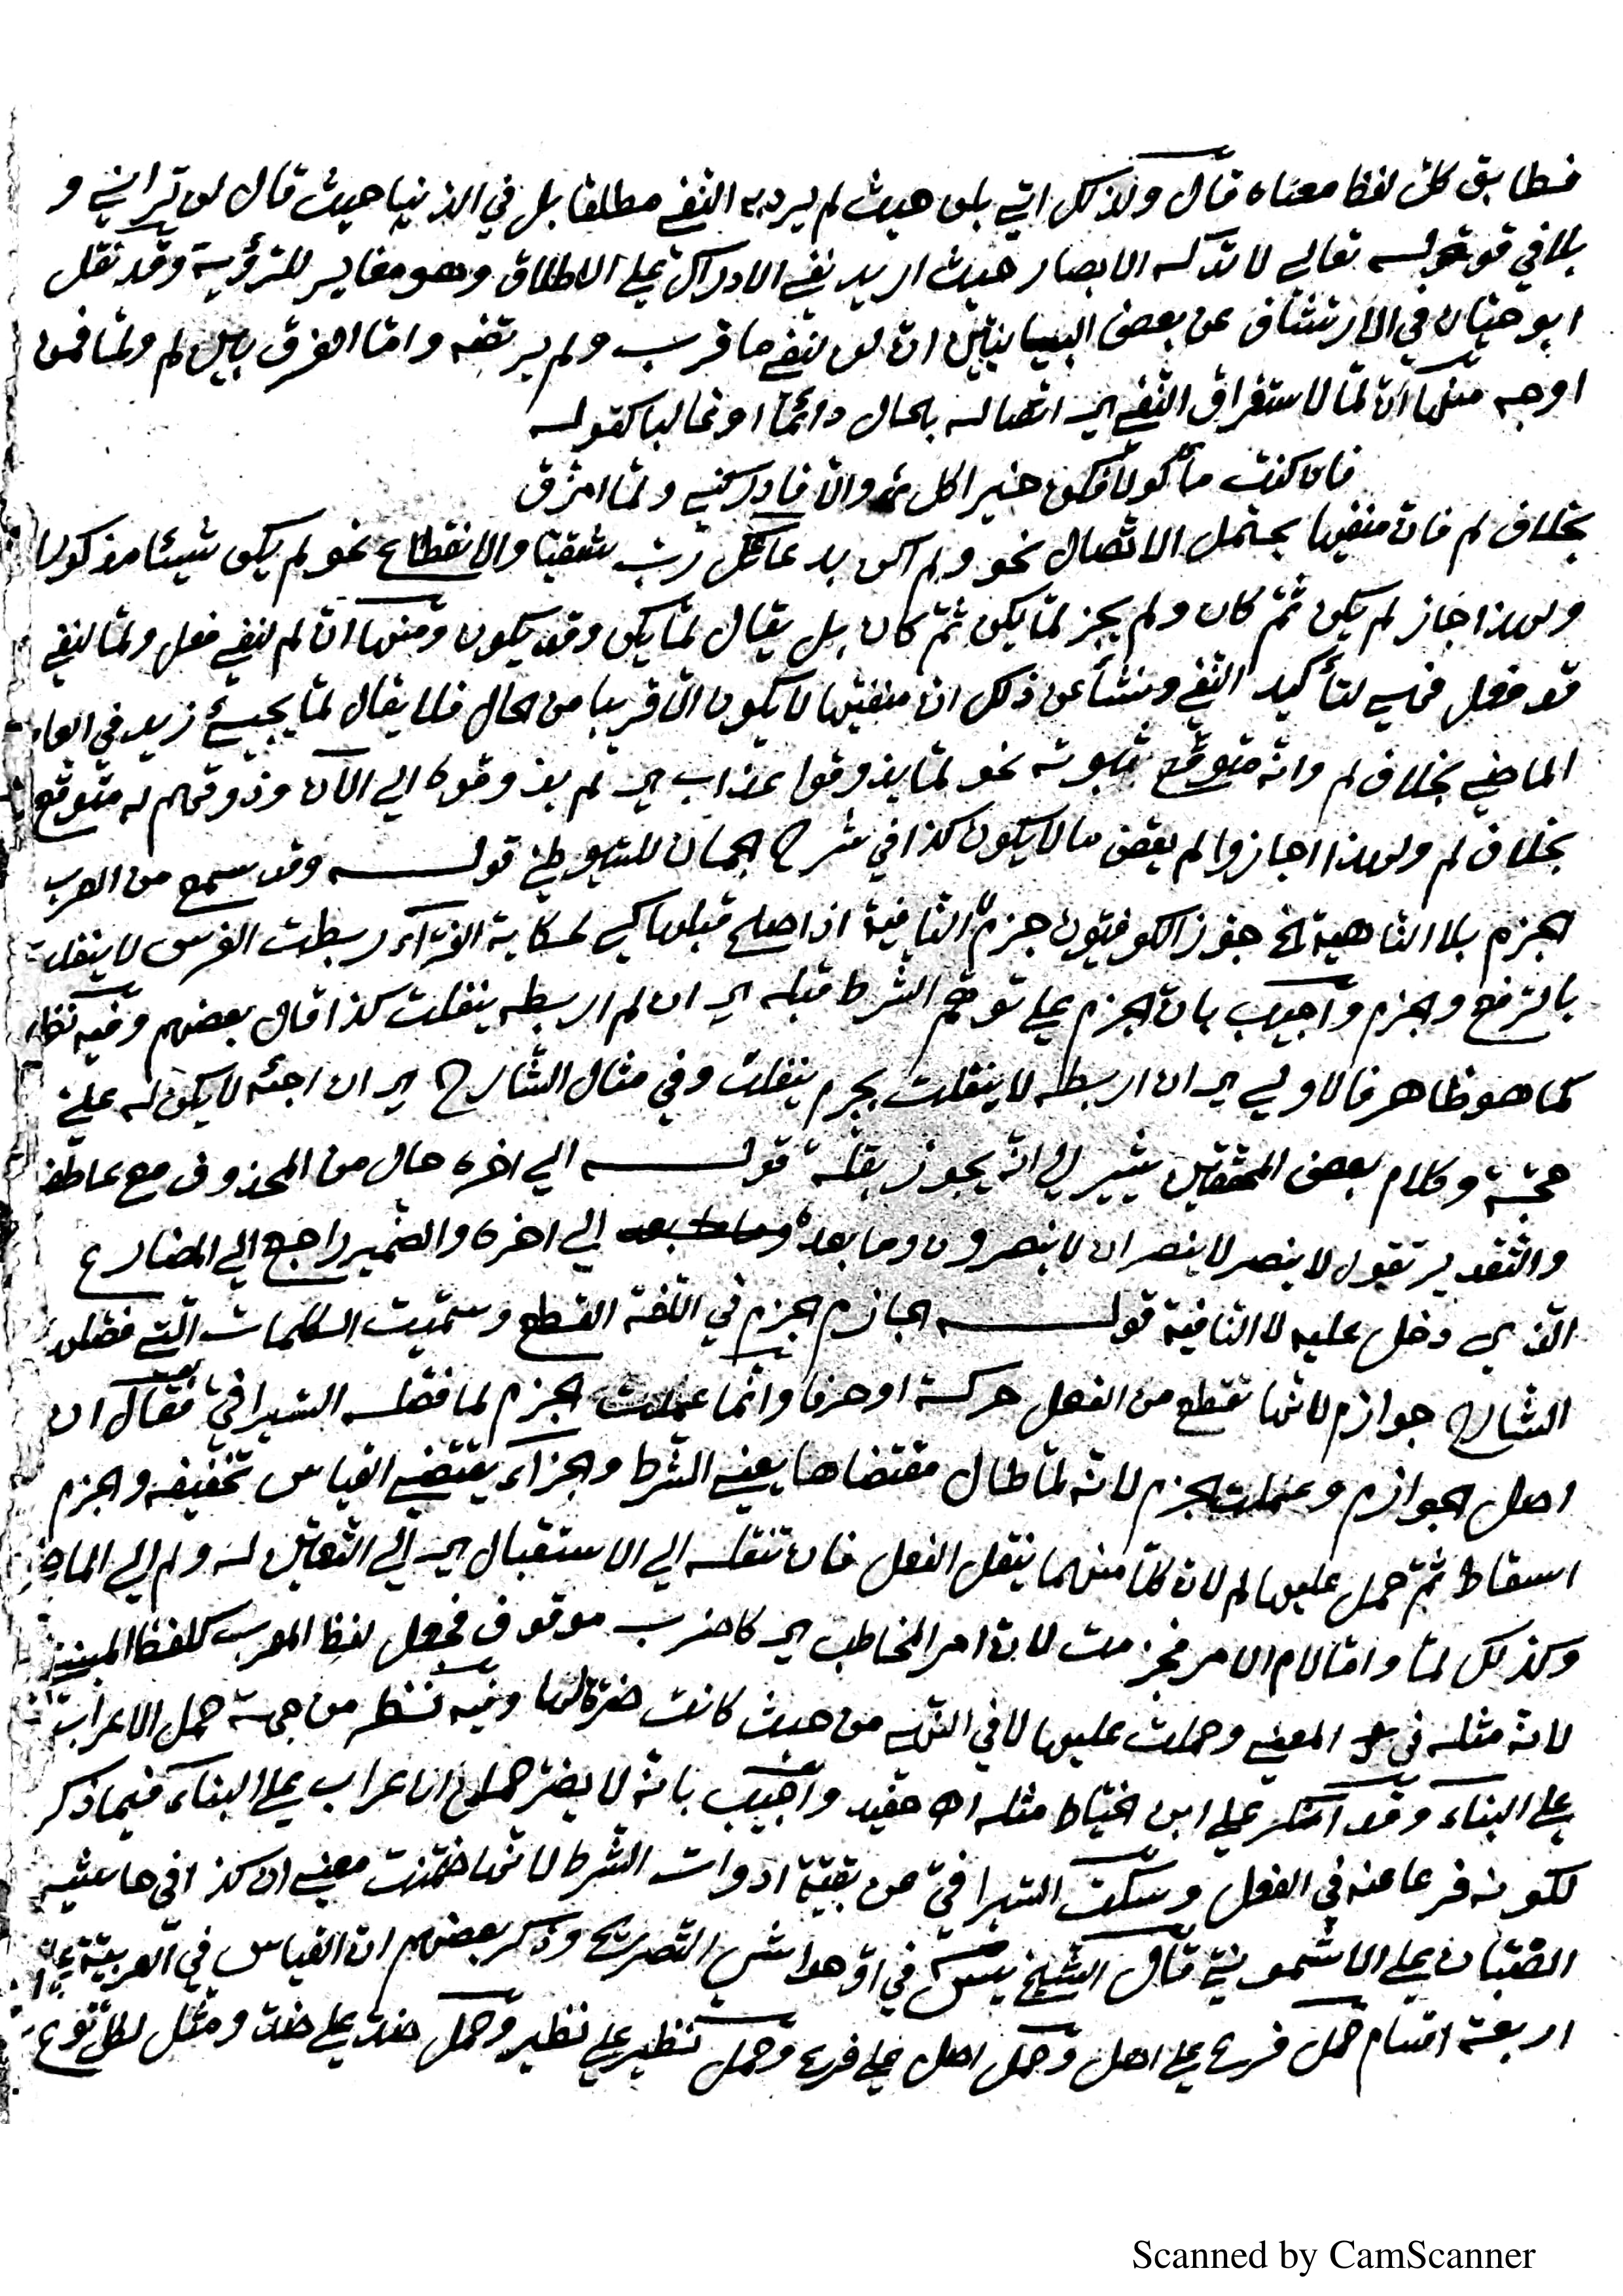 فطابق كلّ لفظ معناه قال ولذلك اتي بلن حيث لم يرد به النّفي مطلقا بل في الدّنيا حيث قال لن تراني و
بلا في قوله تعالي لا تدركه الابصار حيث اريد نفي الادراك علي الاطلاق وهو مغاير للرّؤية وقد نقل
ابو حيّان في الارتشاف عن بعض البيانيّين انّ لن لنفي ما قرب ولم يرتضه وامّا الفرق بين لم ولمّا فمن
اوجه منها انّ لمّا لاستغراق النّفي اي اتصاله بالحال دائما او غالبا كقوله
فان كنت مأكولا فكن خير اكل والّا فادركني ولمّا امزّق
بخلاف لم فانّ منفيها يحتمل الاتّصال نحو ولم اكن بدعائك ربّ شقيّا والانقطاع نحو لم يكن شيئا مذكورا
ولهذا جاز لم يكن ثمّ كان ولم يجز لمّا يكن ثمّ كان بل يقال لمّا يكن وقد يكون ومنها انّ لم لنفي فعل ولمّا لنفي
قد فعل فهي لتأكيد النّفي ومنشأ عن ذلك انّ منفيّها لا يكون الّا قريبا من الحال فلا يقال لمّا يجيئ زيد في العام
الماضي بخلاف لم وانّه متوقّع ثبوته نحو لمّا يذوقوا عذاب اي لم يذوقوه الي الآن وذوقهم له متوقّع
بخلاف لم ولهذا اجازوا لم يقض ما لا يكون كذا في شرح الجمان للسّيوطيّ قولـــه وقد سمع من العرب
الجزم بلا النّاهية الخ جوّز الكوفيّون جزم النّافية اذا صلح قبلها كي لحكاية الفرّاء ربطت الفرس لا ينفلت
بالرّفع والجزم واجيب بانّ الجزم علي توهّم الشّرط قبله اي ان لم اربطه ينفلت كذا قال بعضهم وفيه نظر
كما هو ظاهر فالاولي اي ان اربطه لا ينفلت بجزم ينفلت وفي مثال الشّارح اي ان اجئه لا يكن له عليّ
حجّة وكلام بعض المحقّقين يشير الي انّه يجوز بقلّة قولـــه الي اخره حال من المحذوف مع عاطفه
والتّقدير تقول لا ينصر لا ينصران لا ينصرون وما بعده الي اخره والضّمير راجع الي المضارع
الّذي دخل عليه لا النّافية قولـــه الجازم الجزم في اللّغة القطع وسمّيت الكلمات الّتي فصّلها
الشّارح جوازم لانّها تقطع من الفعل حركة او حرفا وانّما عملت الجزم لما فصّله السّيرافيّ فقال ان
اصل الجوازم وعملت الجزم لانّه لمّا طال مقتضاها يعني الشّرط والجزاء يقتضي القياس تخفيفه والجزم
اسقاط ثمّ حمل عليها لم لانّ كلّا منهما ينقل الفعل فان تنقله الي الاستقبال اي الي التّعيّن له ولم الي الماضي
وكذلك لمّا وامّا لام الامر فجزمت لانّ امر المخاطب اي كاضرب موقوف فجعل لفظ المعرب كلفظ المبنيّ
لانّه مثله في المعني وحملت عليها لا في النّهي من حيث كانت ضرّة لها وفيه نظر من جهة حمل الاعراب
علي البناء وقد انكر علي ابن الخيّاط مثله اه حفيد واجيب بانّه لا يضرّ حمل الاعراب علي البناء فيما ذكر
لكونه فرعا عنه في الفعل وسكت السّيرافيّ عن بقيّة ادوات الشّرط لانّها ضمّنت معني ان كذا في حاشية
الصّبّان علي الاشمونيّ قال الشّيخ يس في حواشي التّصريح وذكر بعضهم انّ القياس في العربيّة علي
اربعة اقسام حمل فرع علي اصل وحمل اصل علي فرع وحمل نظير علي نظير وحمل ضدّ علي ضدّ ومثّل لكلّ نوع
Scanned by CamScanner